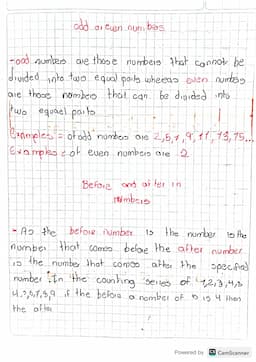 odd or even numbers
-odd numbers are those numbers that cannot be
divided into two equal parts whereas even numbers
are those numbers that can be divided into
two equael parts
Examples = of odd numbers are 2,5,7,9,11,13,15...
Examples = of even numbers are 2
Before and after in
numbers
- As the before number is the number is the
number that comes before the after number
is the number that comes after the specified
number. In the counting series of 1,2,3,4,5
if the before a number of 5 is 4 then
the after
Powered by CS CamScanner